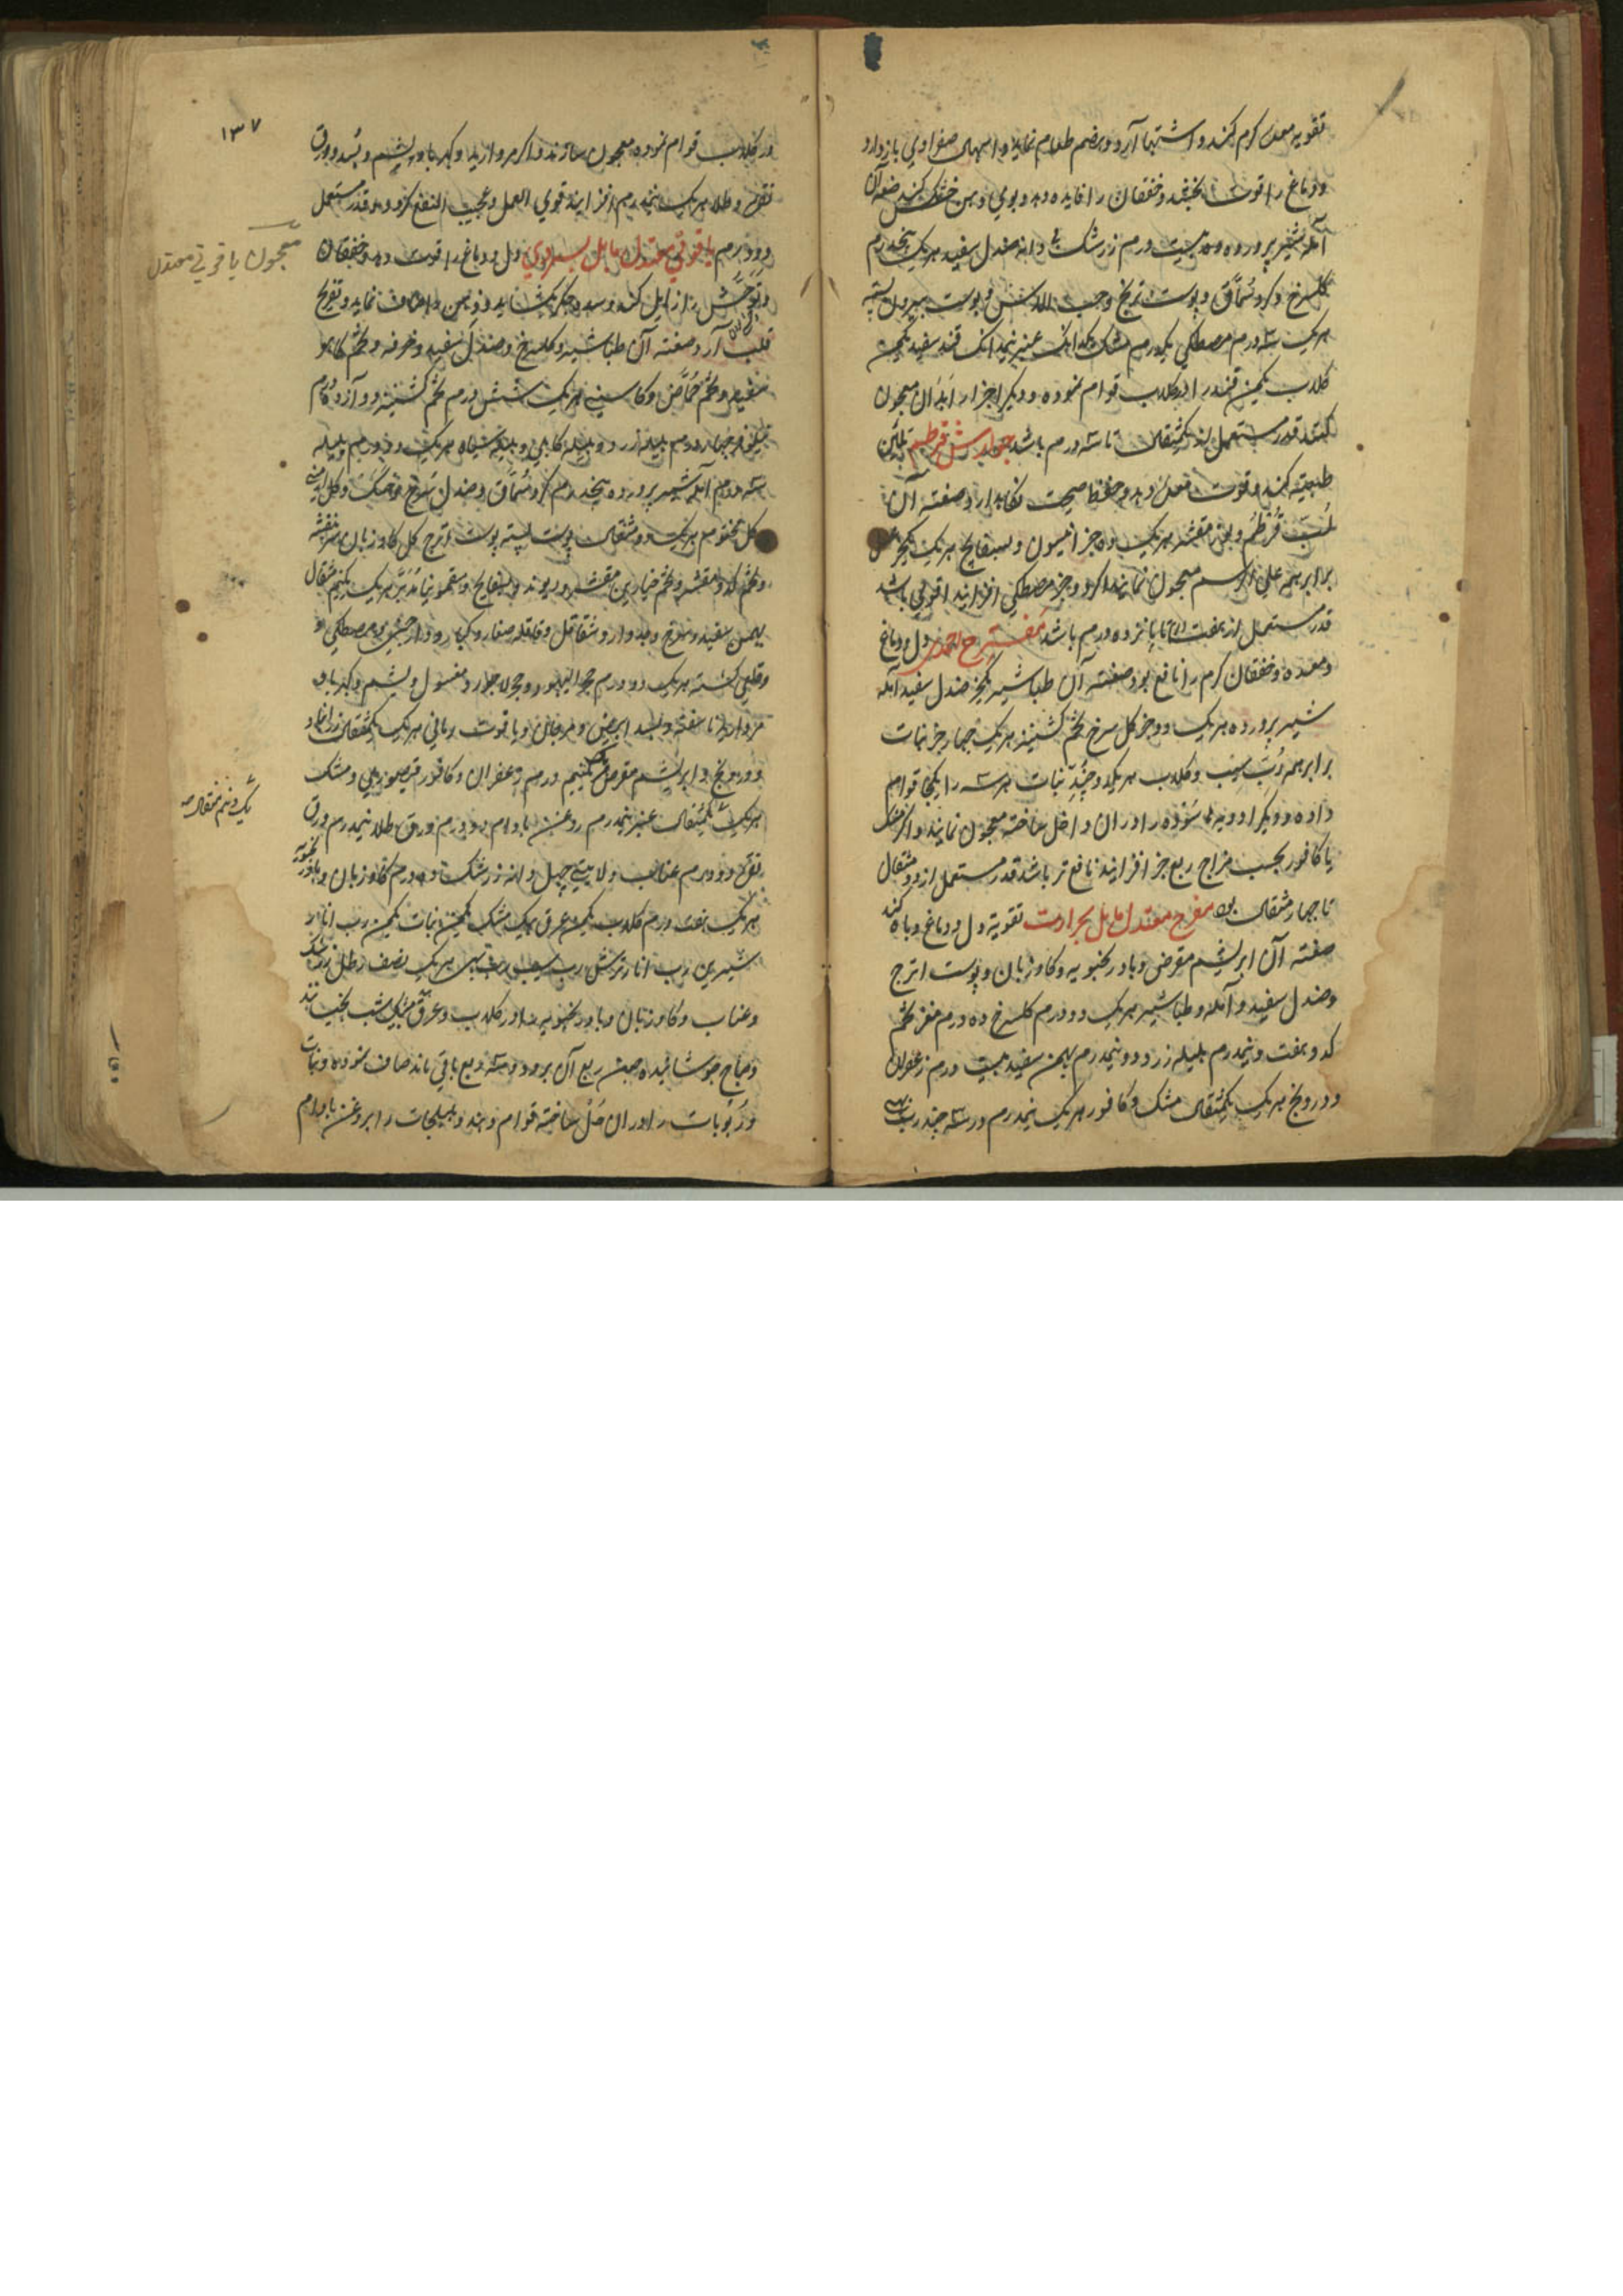 تقویه معده کرم کند و اشتها آرد و هضم طعام نماید و اسهال صفراوی باز دارد
و دماغ را قوت بخشد و خفقان را فایده دهد و بوی دهن خوش کند صفة آن
آمله شیر پرورده بیست درم زرشک دانه صندل سفید هر یک پنجدرم
کلسرخ و کرد سُمّاق و پوست ترنج و حب الاس و پوست بیرون پسته
هر یک سه درم مصطکی یکدرم مشک یکدانک عنبر نیمدانک قند سفید یکمن
کلاب یکمن قند را در کلاب قوام نموده و دیکر اجزا را بدان معجون
کنند قدر مستعمل از یکمثقال تا سه درم باشد جوارش قرطم تلیین
طبیعة کند و قوت معده دهد و حفظ صحت نکاهدارد صفته آن
لُبّ قُرطُم و مقشر هر یک ده جز انیسون و بسفایج هر یک یکجز عسل
برابر همه علی الرسم معجون نمایند اکر دو جز مصطکی افزایند اقوی باشد
قدر مستعمل از هفت تا پانزده درم باشد مفرح احمدی دل و دماغ
و معده و خفقان کرم را نافع بود صفته آن طباشیر یکجز صندل سفید آمله
شیر پرورده هر یک دو جز کل سرخ تخم کشنیز هر یک چهار جز نبات
برابر همه رُبّ سیب و کلاب هر یک دو چند نبات هر سه را یکجا قوام
داده و دیکر ادویه سوده را در ان داخل ساخته معجون نمایند و اکر مشک
یا کافور بحسب مزاج ربع جز افزایند نافع تر باشد قدر مستعمل از دو مثقال
تا چهار مثقال بود مفرح معتدل مایل بحرارت تقویة دل و دماغ و باه کند
صفته آن ابریشم مقرض و بادرنجبویه و کاوزبان و پوست اترج
و صندل سفید و آمله و طباشیر هر یک دو درم کلسرخ ده درم مغز تخم
کدو هفت و نیمدرم بلیله زرد دو و نیمدرم بهمن سفید بیست درم زعفران
و درونج هر یک یکمثقال مشک و کافور هر یک نیمدرم در سه چند رب
۱۳۷
در کلاب قوام نموده معجون سازند و اکر مروارید و کهربا و یشم و بسد و ورق
نقره و طلا هر یک نیمدرم افزایند قوی العمل و عجیب النفع کردد و قدر مستعمل
دو درم یاقوتی معتدل مایل بسردی دل و دماغ را قوت دهد و خفقان
و توحّش را زایل کند و سده جکر بکشاید و ذهن را صاف نماید و تفریح
قلب آرد صفته آن طباشیر و کلسرخ و صندل سفید و خرفه و تخم کاهو
مقشر و تخم حُمّاض و کاسنی هر یک شش درم تخم کشنیز دوازده درم
نیلوفر چهار درم هلیله زرد و هلیله کابلی و هلیله سیاه هر یک دو درم بلیله
سه درم آمله شیر پرورده پنجدرم کرد سُمّاق و صندل سرخ و کل ارمنی
کل مختوم هر یک دو مثقال پوست پسته پوست اترج کل کاوزبان بنفشه
و تخم کدو مقشر و تخم خیارین مقشر و ریوند و بسفایج و سقمونیا هر یک یکنیم مثقال
بهمن سفید و سرخ و جدوار و شقاقل و قاقله صغار و کبار و دارچینی مصطکی
هر یک دو درم حجر الیهود و حجر لاجورد مغسول و یشم و کهربا
مروارید ناسفته و بسد ابیض و مرجان و یاقوت رمانی هر یک یکمثقال
و درونج و ابریشم مقرض یکنیم درم زعفران و کافور قیصوری و مشک
هر یک یکمثقال عنبر نیمدرم روغن بادام دو درم ورق طلا نیمدرم ورق
نقره دو درم عناب ولایتی چهل دانه زرشک ده درم کاوزبان و بادرنجبویه
هر یک هفت درم کلاب یکمن عرق بیدمشک یکمن نبات یکمن رب انار
شیرین رب انار ترش رب سیب رب به هر یک نصف رطل زرشک
و عناب و کاوزبان و بادرنجبویه را در کلاب و عرق یک شب بخیسانند
و صباح جوشانیده چون ربع آن برود و سه ربع باقی ماند صاف نموده و نبات
و رُبوبات را در ان حَل ساخته قوام دهند و هلیلجات را بروغن بادام
معجون یاقوتی معتدل
یک و نیم مثقال